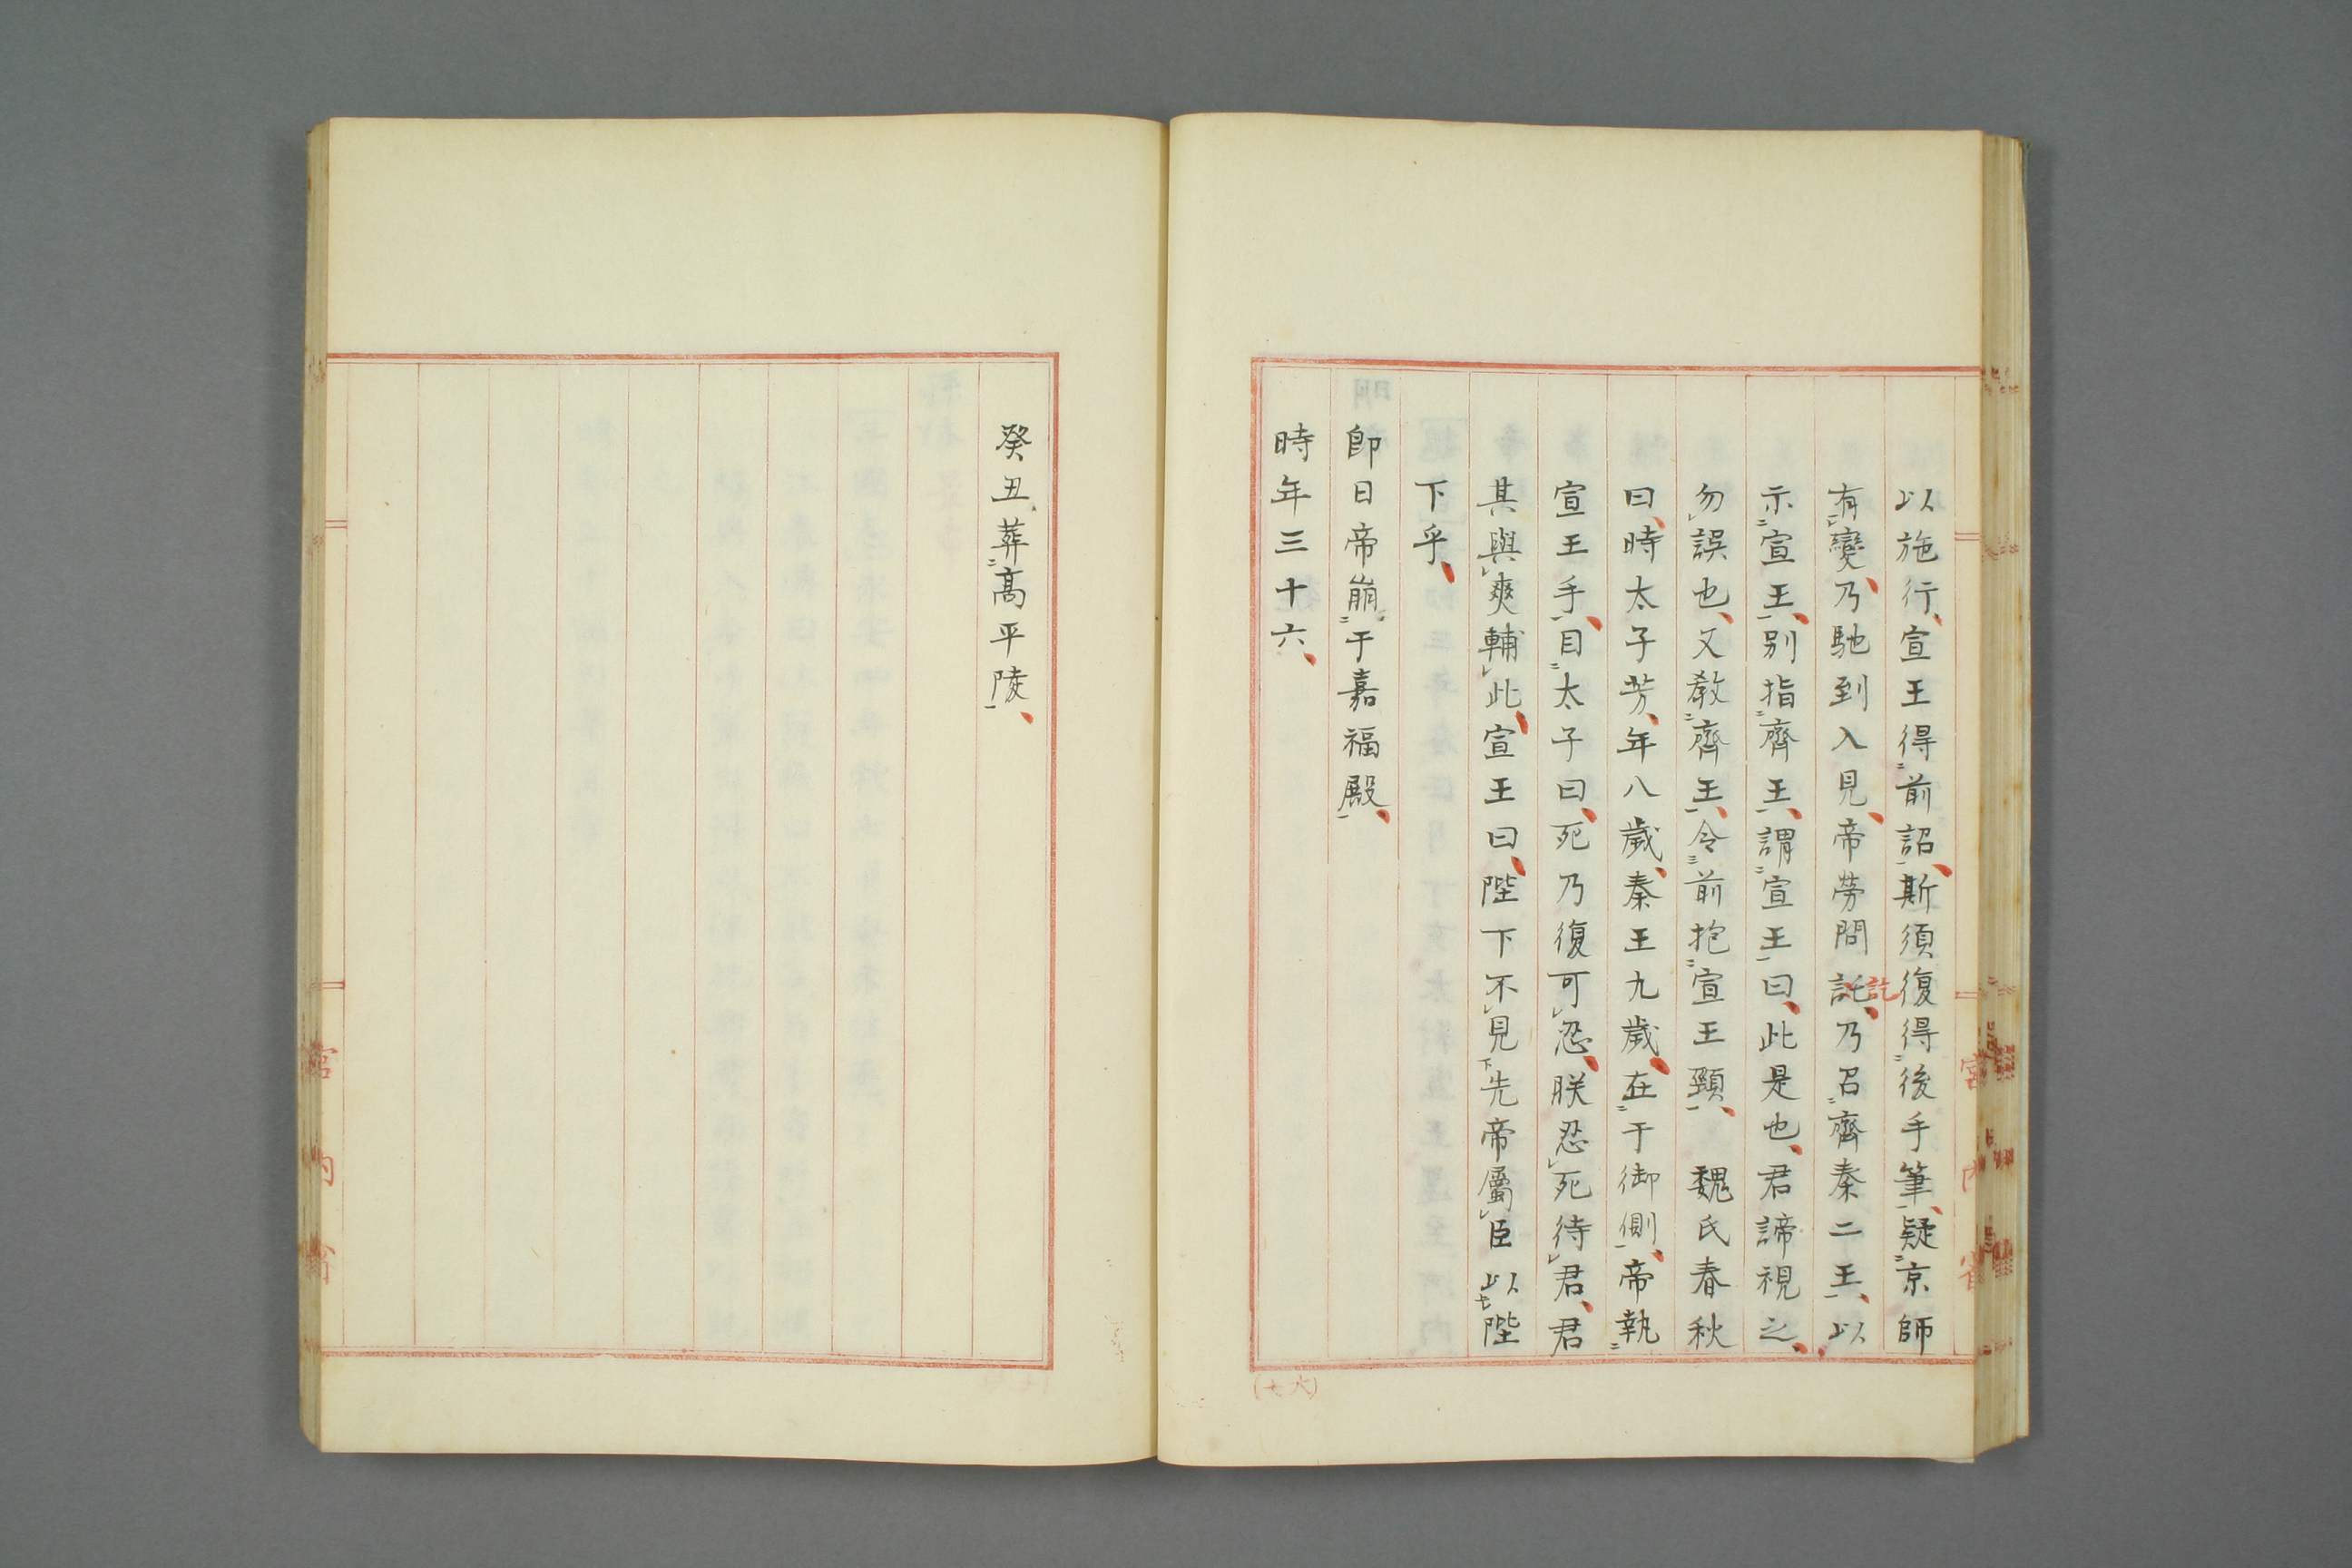 以施行、宣王得前詔、斯須復得後手筆、疑京師
有變、乃馳到入見、帝勞問託、乃召齊秦二王、以
訖
示宣王、別指齊王、謂宣王曰、此是也、君諦視之、
勿誤也、又教齊王、令前抱宣王頸、魏氏春秋
曰、時太子芳、年八歲、秦王九歲、在于御側、帝執
宣王手、目太子曰、死乃復可忍、朕忍死待君、君
其與爽輔此、宣王曰、陛下不見先帝屬臣以陛
下乎、
即日帝崩于嘉福殿、
時年三十六、
癸丑葬高平陵、
宮內省
宮內省